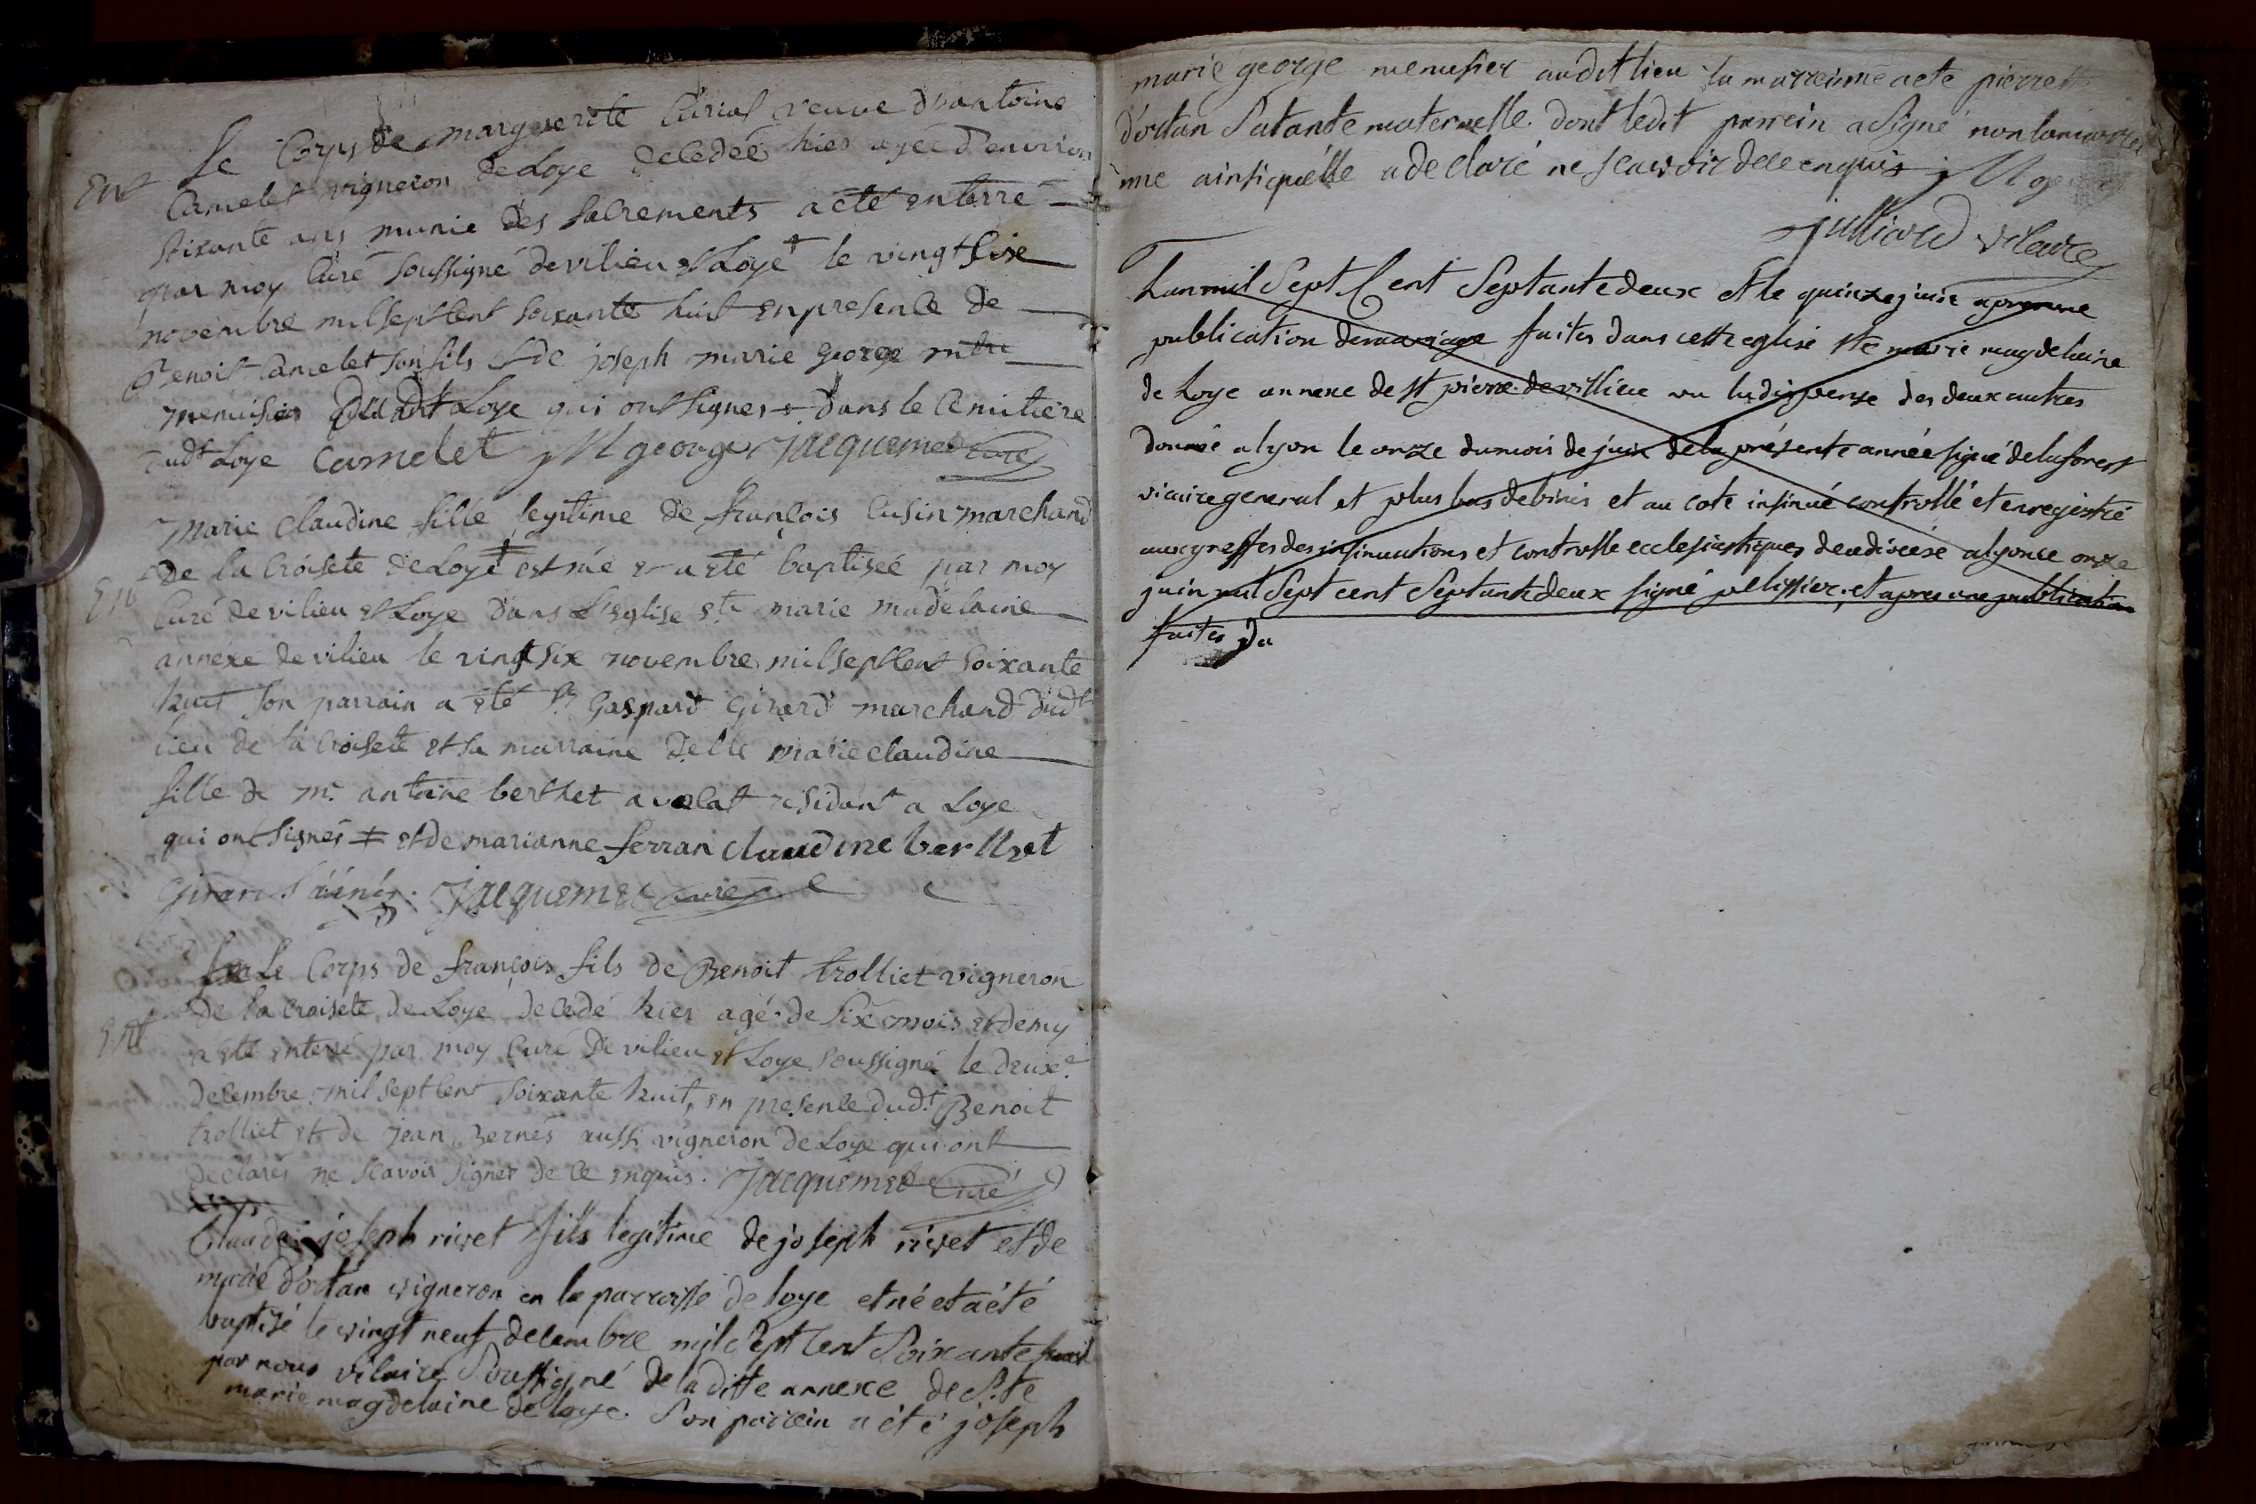 Le Corps de marguerite Curial veuve d'antoine
Ent
Camelet vigneron de Loye decedée hier agée d'environ
soixante ans munie des sacrements a eté enterré
par moy Curé soussigné de vilieu et Loye + le vingt sixe
novembre mil sept cent soixante huit en presence de
Benoit Camelet son fils et de joseph marie george mtre
menuisier dudt Loye qui ont signés + dans le Cemitiere
dudt Loye Camelet JM george Jacquemet Curé
Marie Claudine fille legitime de françois Cusin marchand
De la Croisete de Loye + est née et a eté baptisée par moy
Curé de vilieu et Loye dans L'Eglise ste marie madelaine
annexe de vilieu le vingt six novembre mil sept cent soixante
huit son parrain a eté Sr Gaspard Girard marchand dudt
lieu de la Croisete et sa marraine delle marie claudine
fille de mr antoine berthet avocat residant a Loye
qui ont signés ‡ et de marianne ferran claudine berthet
Girard l'áinés. Jacquemet curé
Le Corps de françois fils de Benoit trolliet vigneron
De la Croisete de Loye decedé hier agé de six mois et demy
Ent
a eté enterré par moy Curé De vilieu et Loye soussigné le deuxe
Decembre mil sept cent soixante huit, en presence dudt Benoit
trolliet et de Jean Bernés aussi vigneron de Loye qui ont
declarés ne scavoir signer de ce enquis. Jacquemet Curé
Claude joseph rivet fils legitime de joseph rivet et de
marie d'ortan vigneron en la parroisse de loye et né et a été
baptisé le vingt neuf decembre mil sept cent soixante huit
par nous vicaire soussigné de la ditte annexe de ste
marie magdelaine de loye. son parrein a été joseph
marie george menusier au dit lieu la marreinne a eté pierrett
d'ortan sa tante maternelle. dont ledit parrein a signé non la marrei
nne ainsi quélle a declaré ne scavoir de ce enquis JM ge
julliard vicaire
L'an mil sept Cent septante deux et le quinze juin apres une
publication de mariage faites dans cette eglise ste marie magdelaine
de Loye annexe de st pierre de villieu vu la dispense des deux autres
donnée a lyon le onze du mois de juin de la présente année signé de la forest
vicaire general et plus bas debinis et au coté insinué controllé et enregistré
aux greffes des insinuations et controlle ecclesiastiques de ce diocese a lyon ce onze
juin mil sept cent septante deux signé pellissier, et apres une publication
faites Du